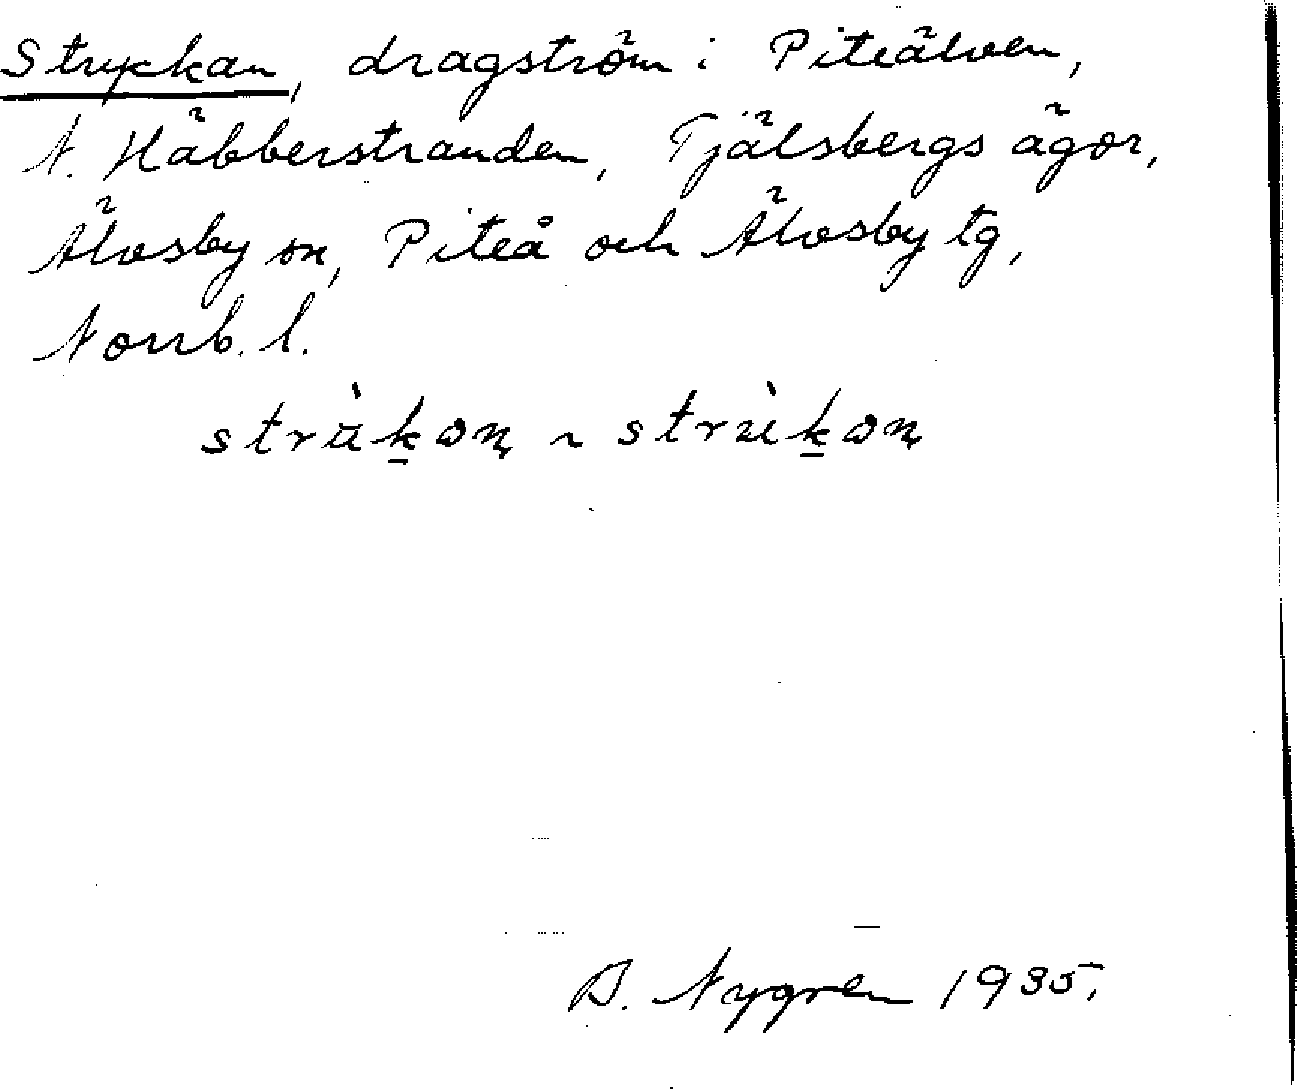 Stryckan, dragström i Piteälven,
N. Häbberstranden, Tjälsbergs ägor,
Älvsby sn, Piteå och Älvsby tg,
Norrb. l.
strùkon ~ strùkon
B. Nygren 1935.